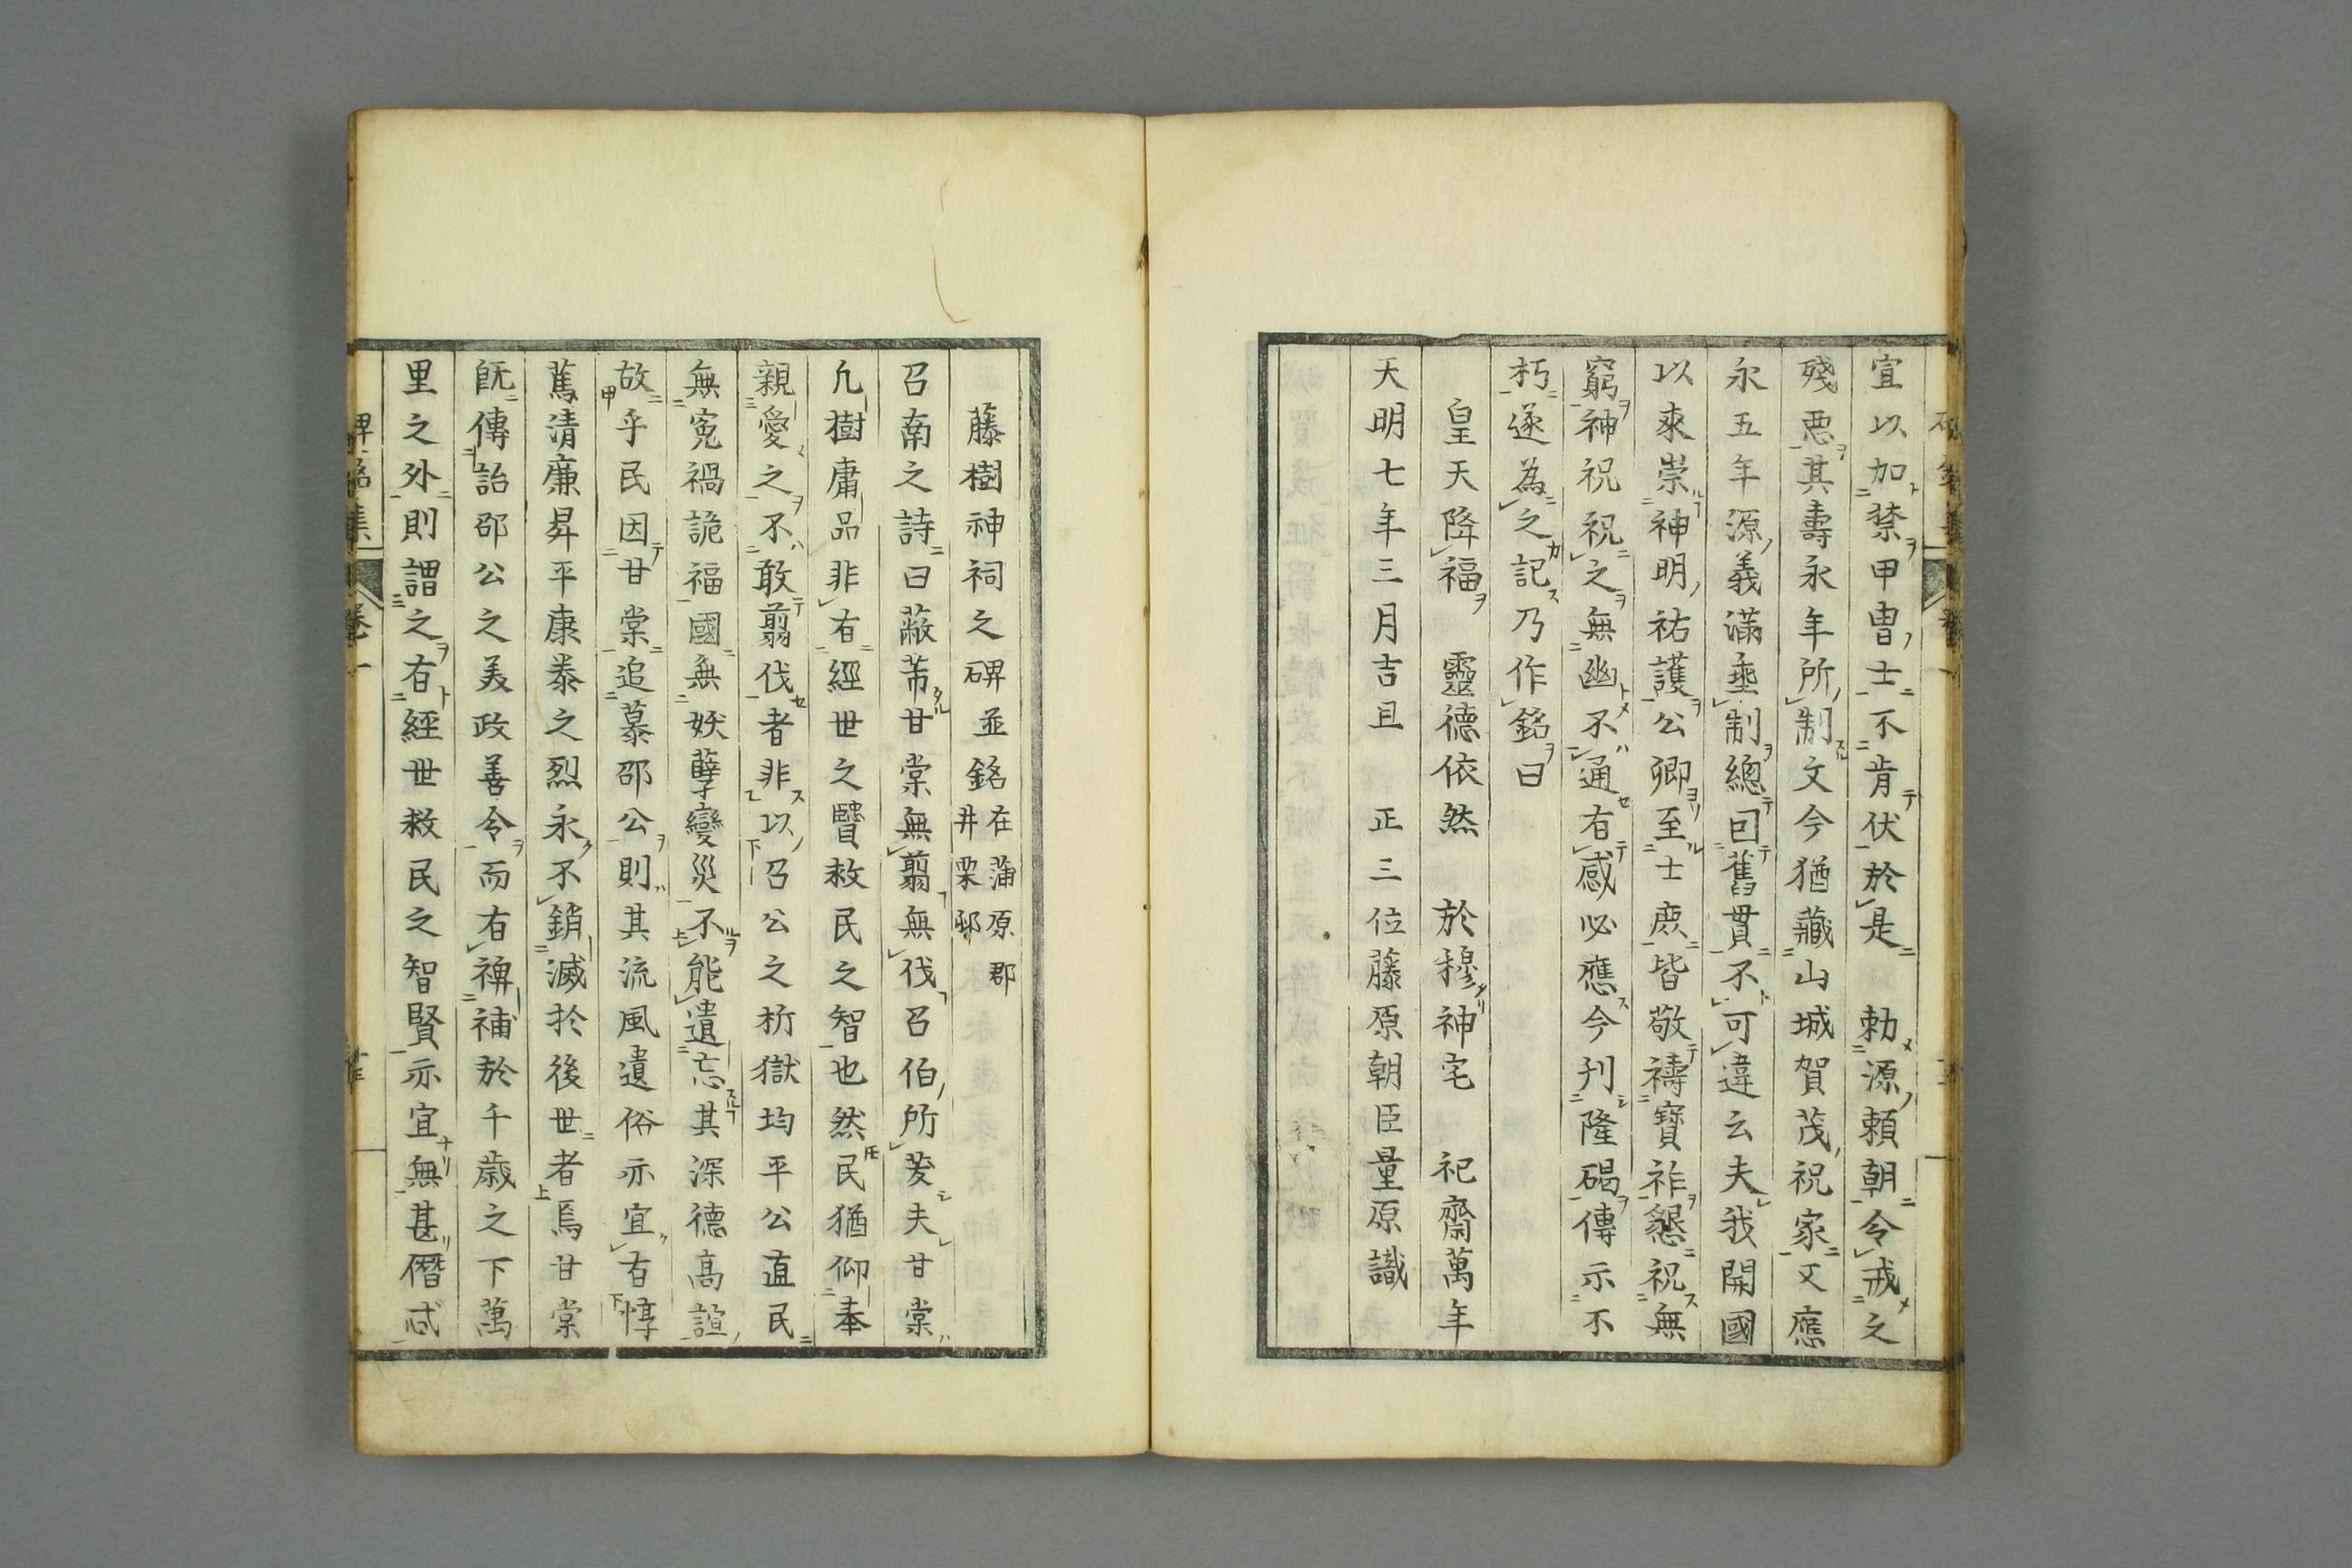 宜以加禁甲冑士不肯伏於是　勅源頼朝令戒之
殘惡其壽永年所制文今猶藏山城賀茂祝家文應
永五年源義滿埀制總囙舊貫不可違云夫我開國
以來崇神明祐護公卿至士庻皆敬禱寶祚懇祝無
窮神祝祝之無幽不通有感必應今刋隆碣傳示不
朽遂為之記乃作銘曰
皇天降福　靈德依然　於穆神宅　祀齋萬年
天明七年三月吉旦　正三位藤原朝臣量原識
藤樹神祠之碑並銘在蒲原郡井栗邨
召南之詩曰蔽芾甘棠無翦無伐召伯所茇夫甘棠
凢樹庸品非有經世之賢救民之智也然民猶仰奉
親愛之不敢翦伐者非以召公之析獄均平公直民
無寃禍詭福國無妖孽變災不能遺忘其深德高誼
故乎民因甘棠追慕邵公則其流風遺俗亦宜有惇
篤清廉昇平康泰之烈永不銷滅於後世者焉甘棠
旣傳詒邵公之美政善令而有裨補於千歳之下萬
里之外則謂之有經世救民之智賢亦宜無甚僭忒
碑銘集　卷一